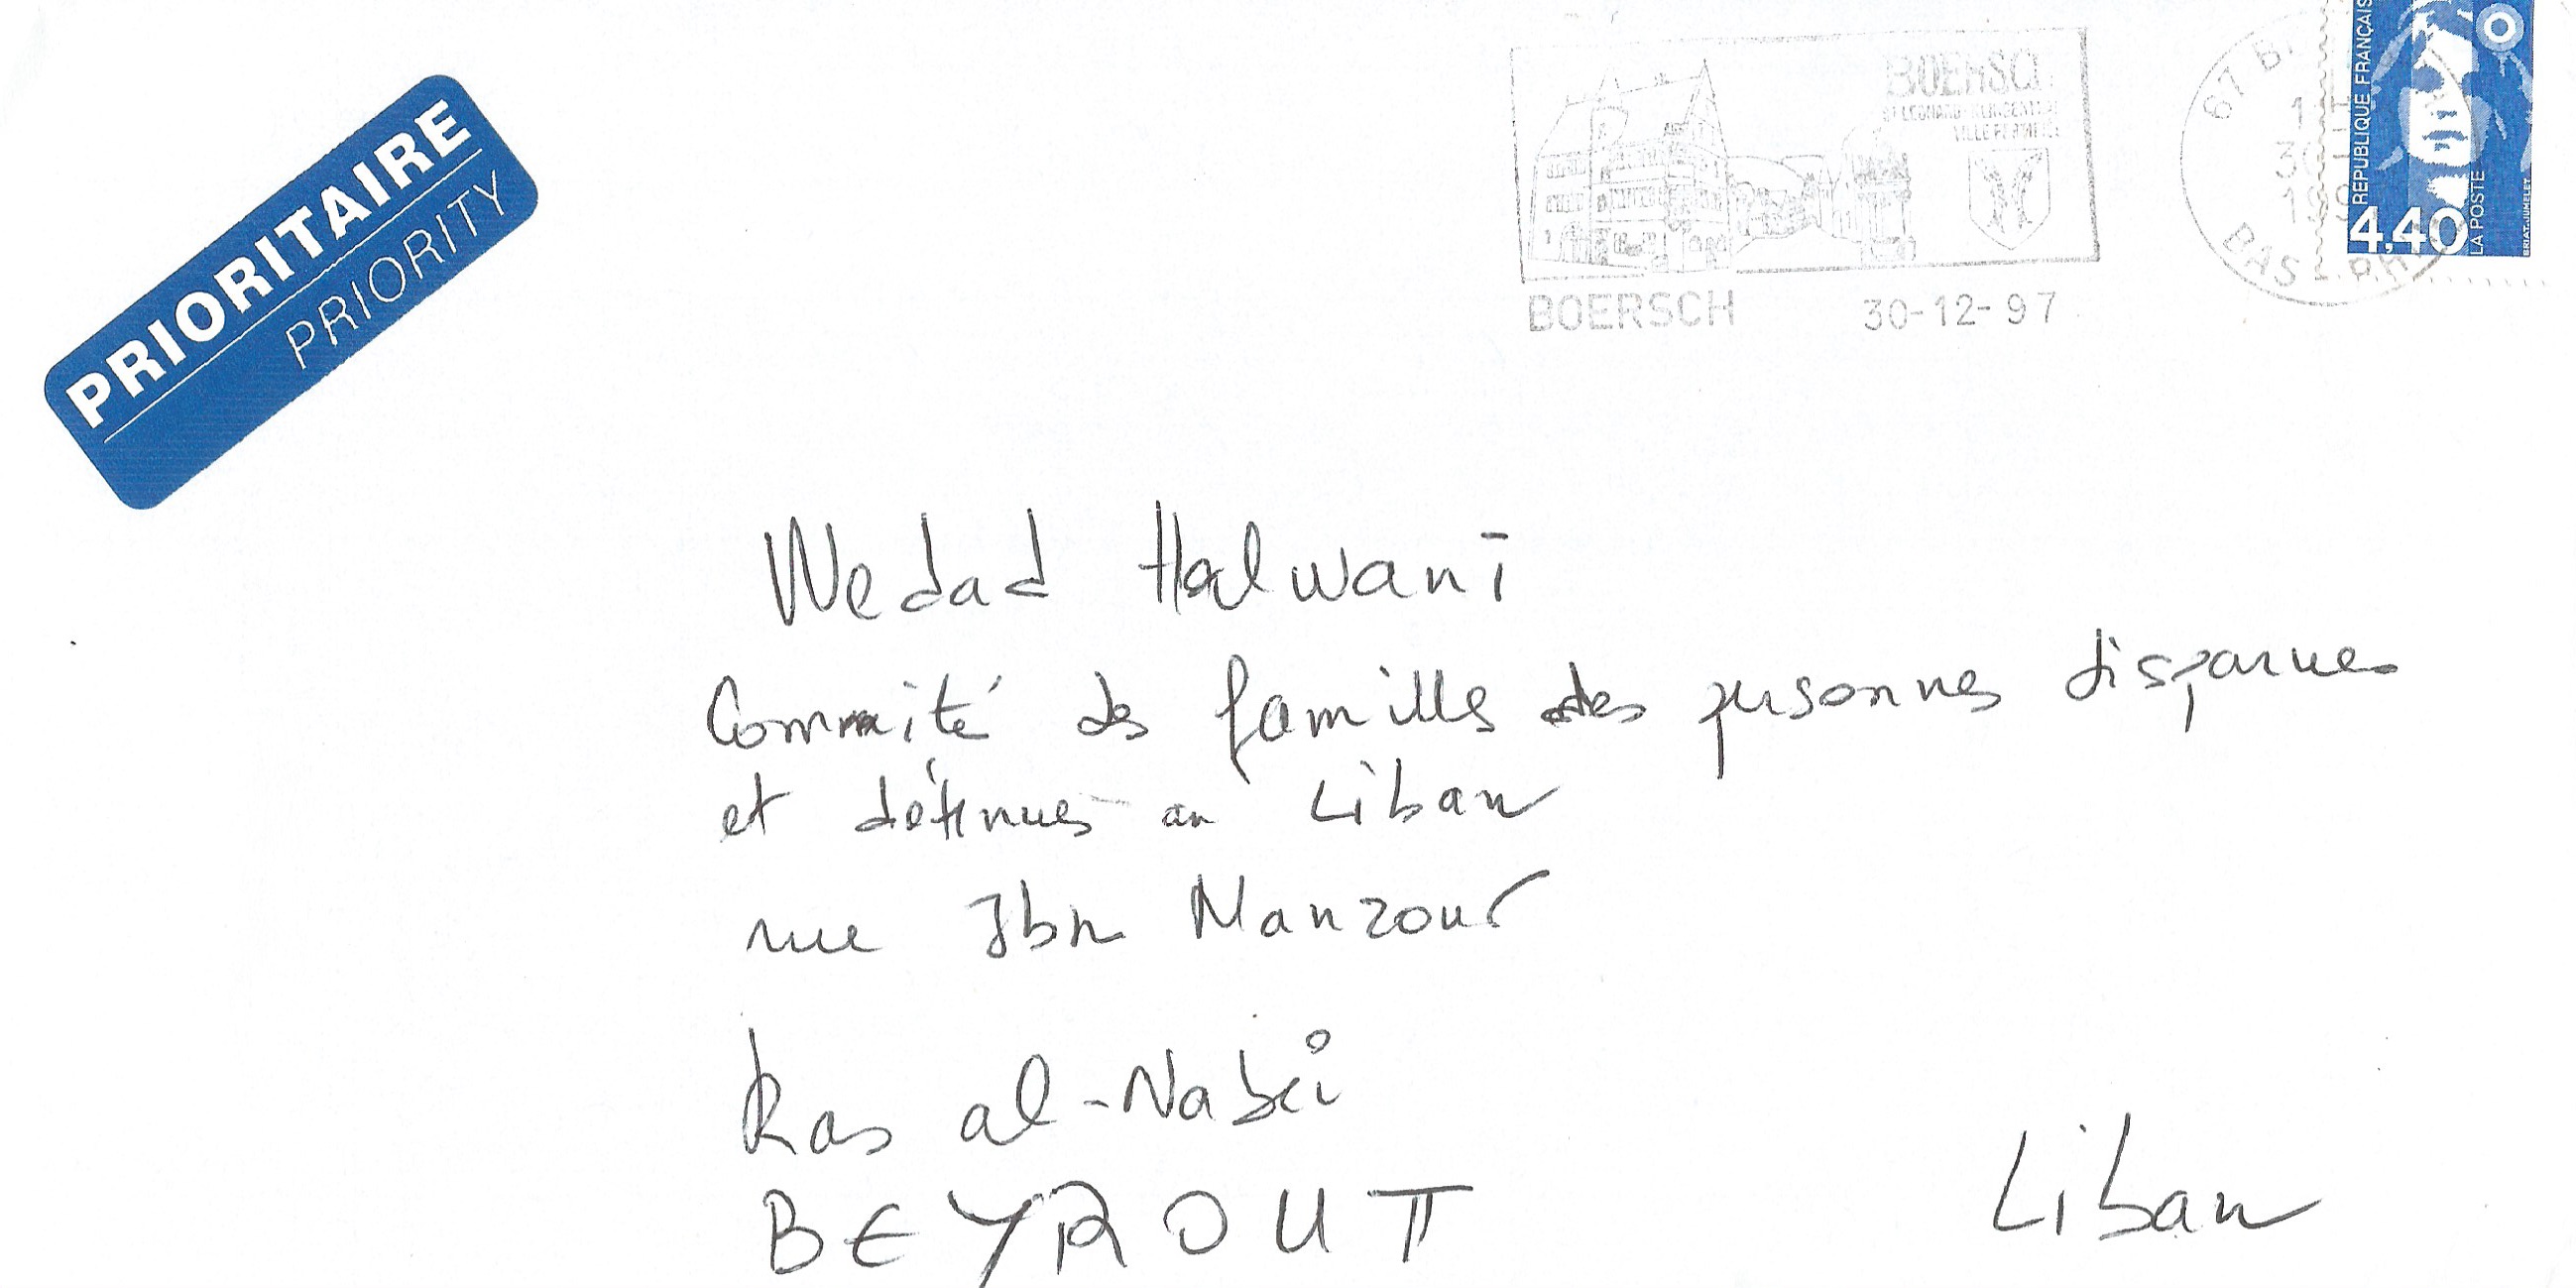 PRIORITAIRE
PRIORITY
BOERSCH
VILLE FERMIEE
BOERSCH 30-12-97
67 B
BAS-RHIN
REPUBLIQUE FRANÇAIS
4,40
LA POSTE
BRIAT-JUMELET
Wedad Halwani
Commité des familles des personnes disparues
et détenues au Liban
rue Ibn Manzour
Ras al-Nabei
BEYROUT
Liban